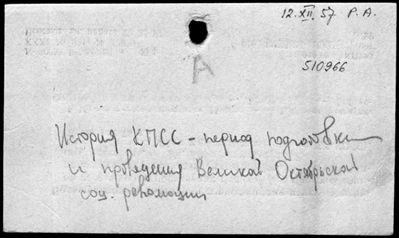 12.XII.57 Р.А.
510966
А
История КПСС – период подготовки
и проведения Великой Октябрьской
соц. революции